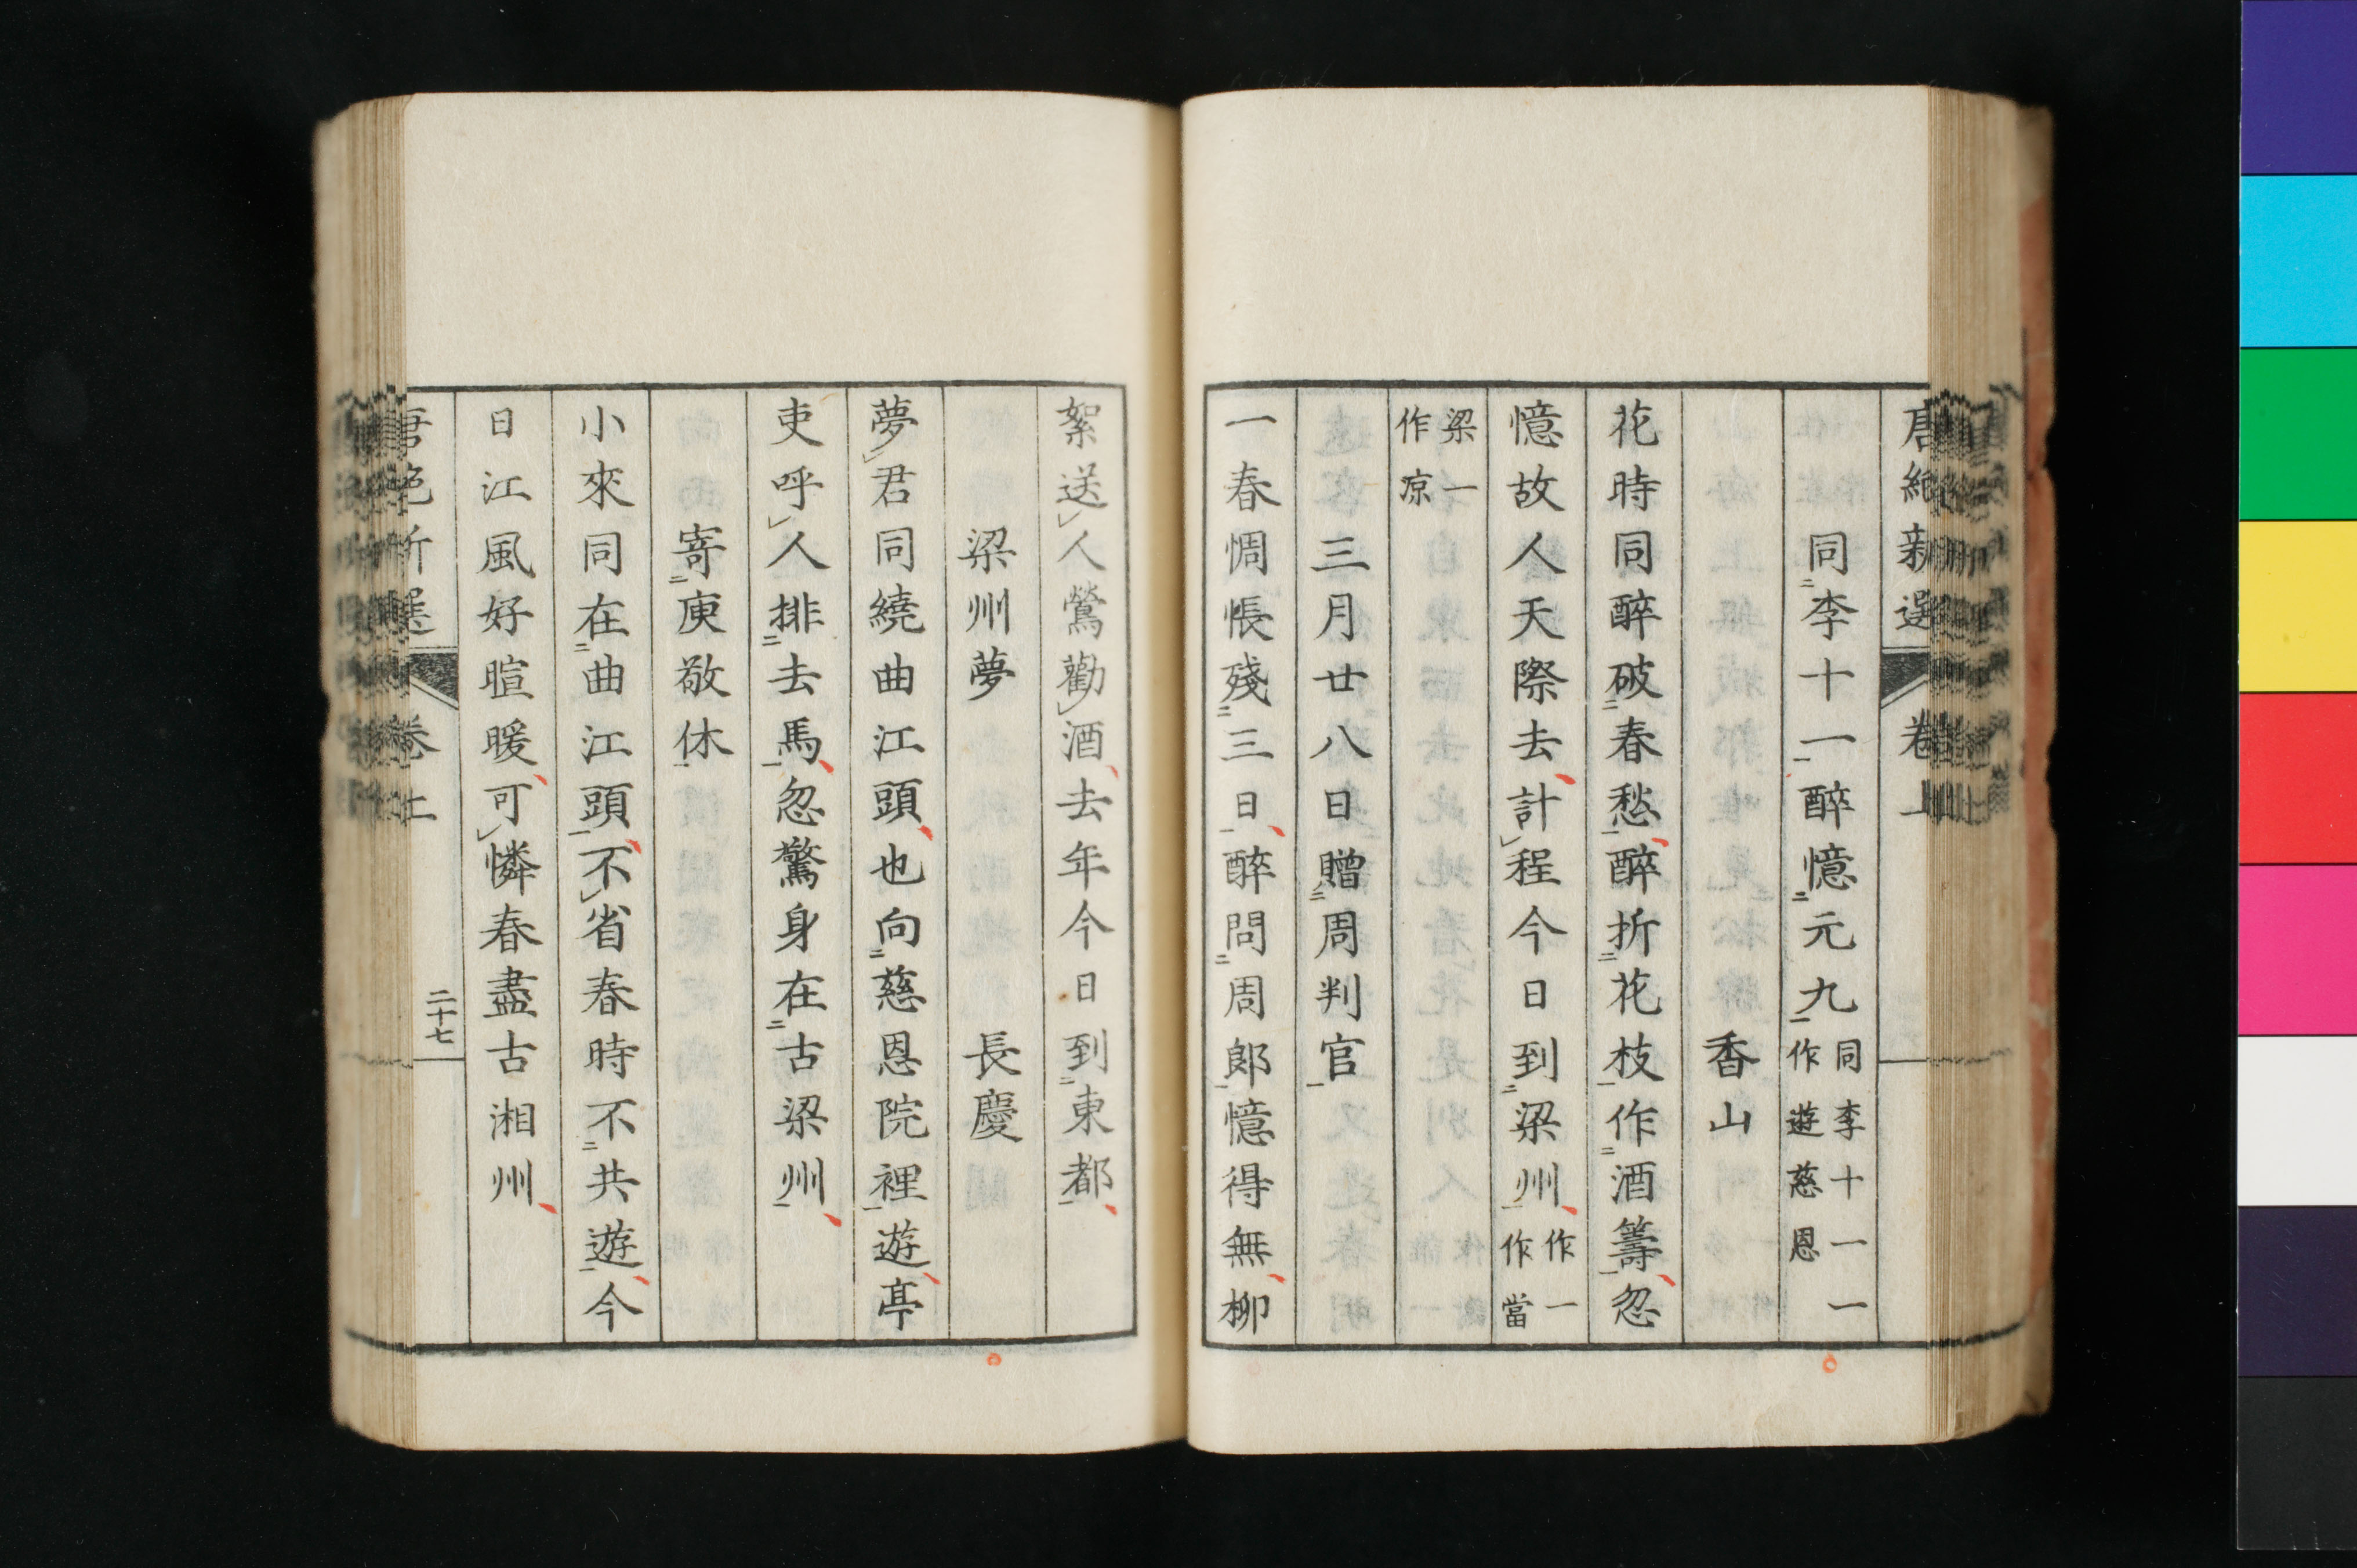 唐絶新選 卷上
同李十一醉憶元九 同李十一一作遊慈恩
香山
花時同醉破春愁醉折花枝作酒籌忽
憶故人天際去計程今日到梁州 作一作當
梁一作凉
三月廿八日贈周判官
一春惆悵殘三日醉問周郎憶得無柳
絮送人鶯勸酒去年今日到東都
梁州夢 長慶
夢君同繞曲江頭也向慈恩院裡遊亭
吏呼人排去馬忽驚身在古梁州
寄庾敬休
小來同在曲江頭不省春時不共遊今
日江風好暄暖可憐春盡古湘州
唐絶新選 卷上 二十七